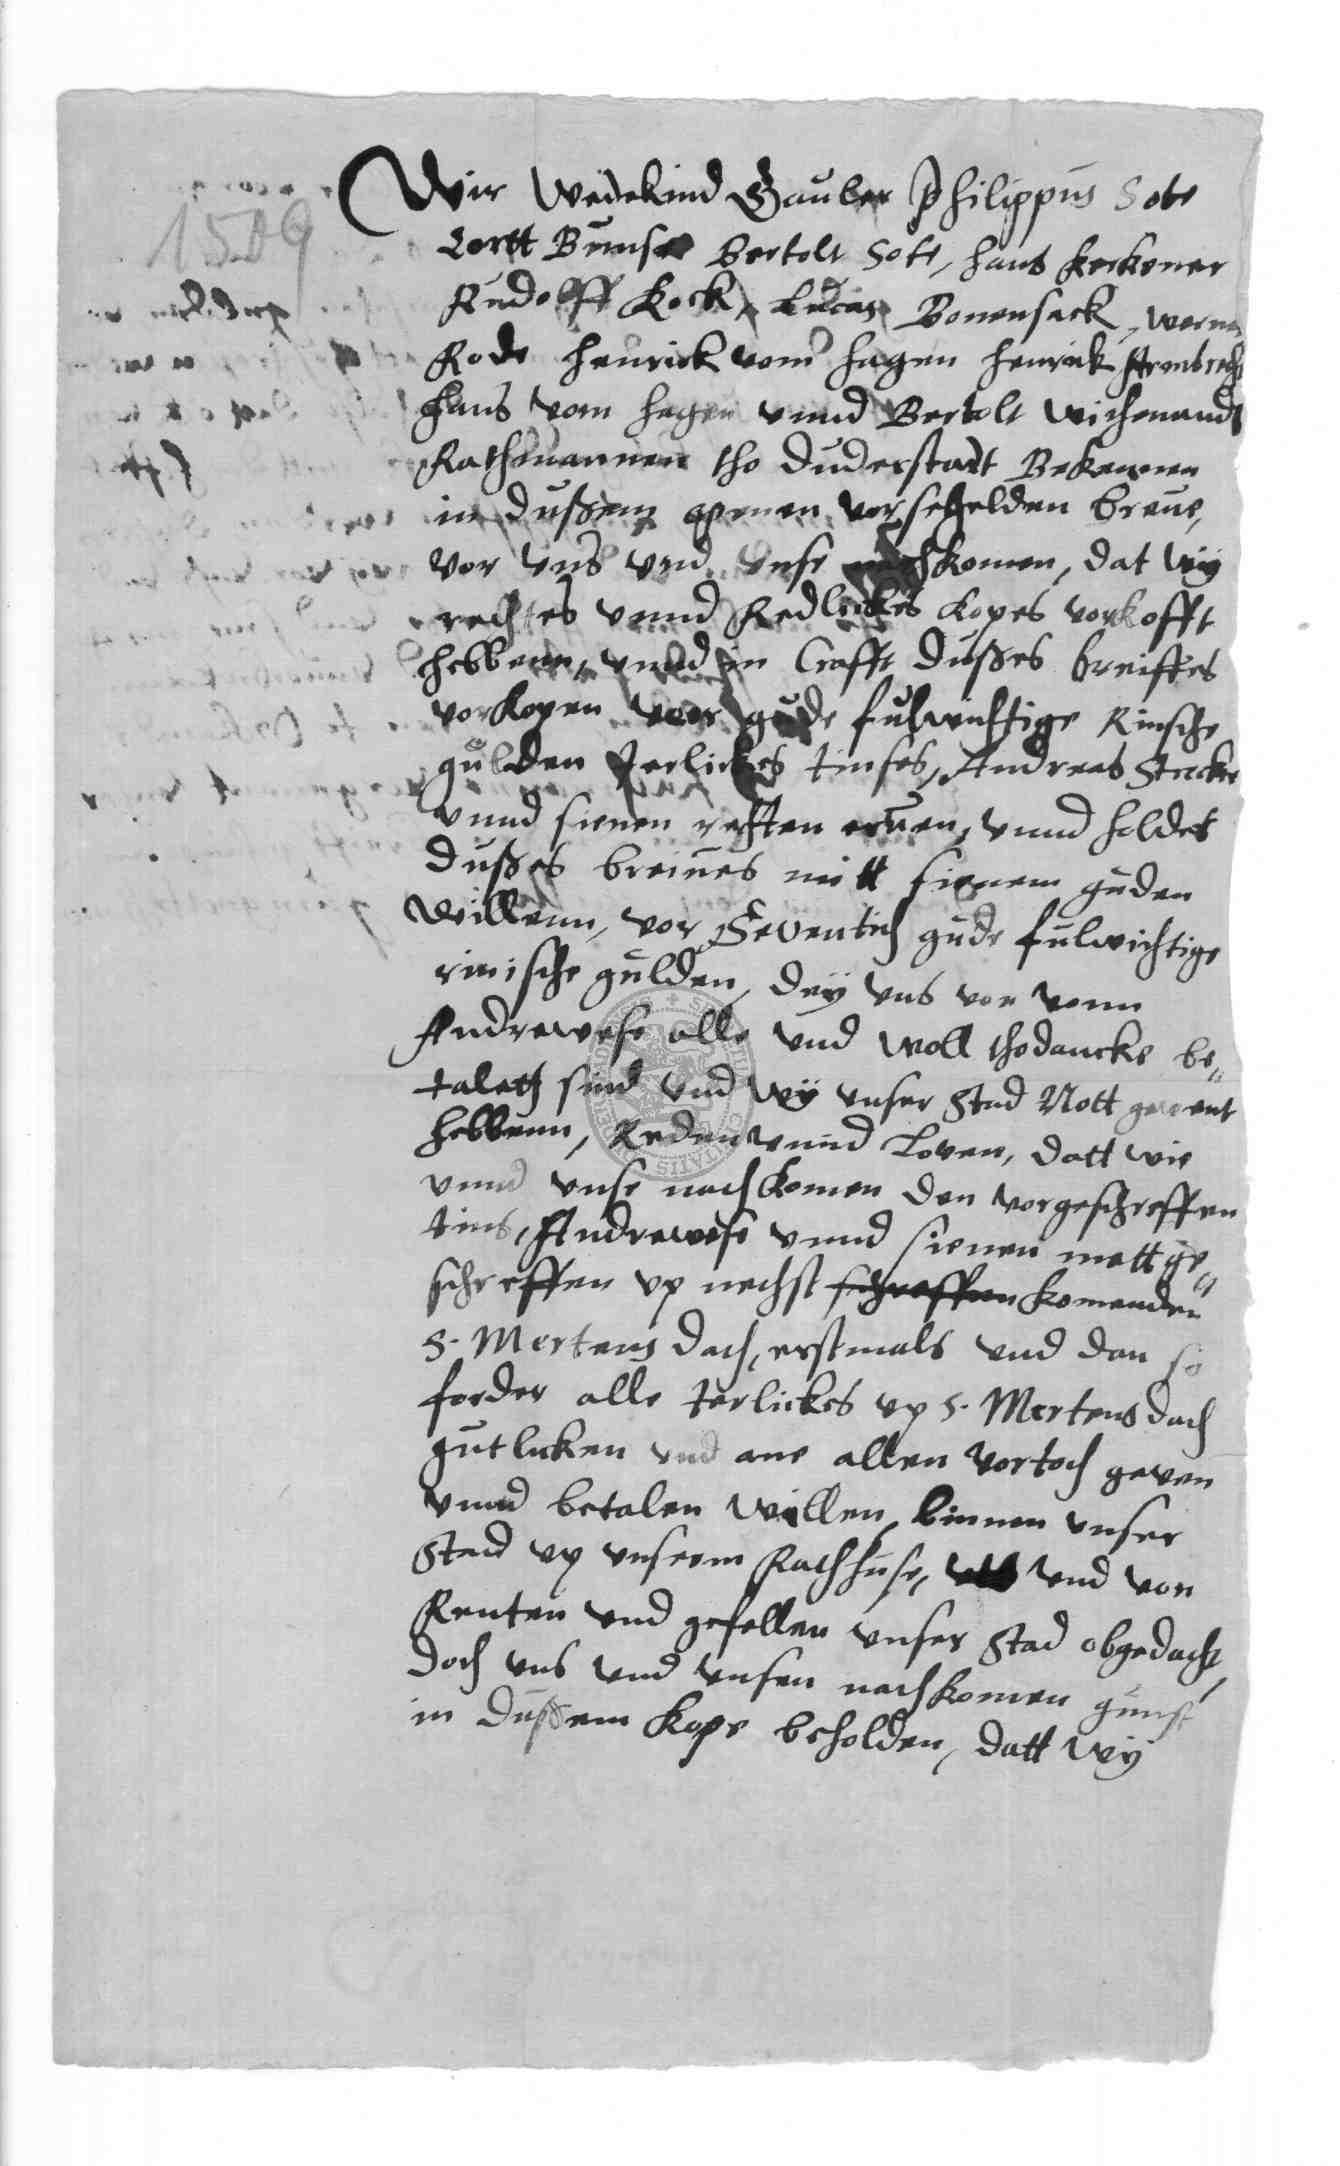 1509
Wir Wedekind Gauler Philippus Sote
Cortt Bunse bertolt Sote, hans Kerkener
Rudolff Kock, Lucas Bonensack, werner
Rode henrick vom hagen henrick
hans vom hagen vnnd Bertolt wichenandt
Rathmannen tho duderstadt Bekennen
in dußem openen vorsegelden breue,
vor vns vnd vnse nachkomen, dat wy
rechtes vnnd Redlickes kopes vorkofft
hebbenn, vnnd in Crafft dußes breiffes
vorkopen veer gude fulwichtige Rinsche
gulden Jerlickes tinses, Andreas Strecke
vnnd sienen rechten eruen, vnnd holder
dußes breiues mitt sienem guden
willenn, vor Seventich gude fulwichtige
rinische gulden, dey vns von venn
Andrewese alle vnd woll thodancke be„
taleth sind vnd wy vnser Stad Nott gewent
hebbenn, Reden vnnd Loven, datt wie
vnnd vnse nachkomen den vorgeschreffen
tins, Andrewese vnnd sienen mettge„
schreffen vp nechst schreffen komenden
S. Mertens dach, erstmals vnd dan so
forder alle Jerlickes vp S. Mertens dach
gutlicken vnd ane allen vortoch geven
vnnd betalen willen, binnen vnser
Stad vp vnserm Rathhuse, vnd von
Renten vnd gefellen vnser Stad obgedacht,
doch vns vnd vnsen nachkomen gunst
in dußem kope beholden, datt wy